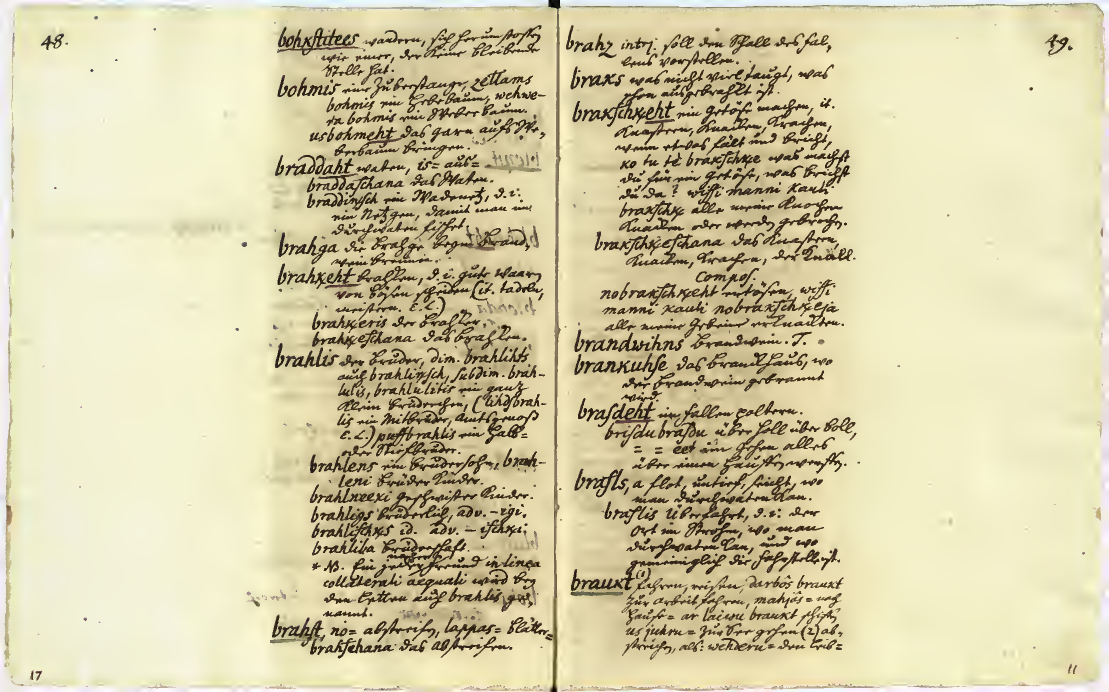 48.
bohxstitees wandern, sich herumstoßen
wie einer, der keine bleibende
Stelle hat.
bohmis eine Zuberstange, zettams
bohmis ein Hebebaum, wehwe-
ra bohmis ein Weberbaum.
usbohmeht das Garn aufs We-
berbaum bringen.
braddaht waten, is= aus=
braddaschana das Waten.
braddinsch ein Wadenetz, d.i.
ein Netzgen, damit man im
durchwaten fischet.
brahga die Brahge beym Brand-
wein brennen.
brahxeht brahken, d.i. gute Waaren
von bösen scheiden (it. tadeln,
meistern. E.L.)
brahxeris der Brahker.
brahxeschana das Brahken.
brahlis der Bruder, dim. brahlihts
auch brahlinsch, subdim. brah-
lulis, brahlulitis ein ganz
klein Brüderchen, (lihdsbrah-
lis ein Mitbruder, Amtsgenoß
E.L.) pussbrahlis ein Halb=
oder Stiefbruder.
brahlens ein Brudersohn, brah-
leni Bruder Kinder.
brahlneexi Geschwister Kinder.
brahligs brüderlich, adv. -igi.
brahlischxs id. adv. - ischxi.
brahliba Brüderschaft.
* NB. Ein jeder Freund in linea
collaterali aequali wird bey
den Letten auch brahlis ge-
nannt.
brahst, no= abstreifen, lappas= Blätter=
brahschana das abstreifen.
17
49.
brahz interj. soll den Schall des fal-
lens vorstellen.
braxs was nicht viel taugt, was
schon ausgebrahkt ist.
braxschxeht ein getöse machen, it.
knastern, knacken, krachen,
wenn etwas fält und bricht,
xo tu tè braxschxe was machst
du für ein getöse, was brichst
du da? wissi manni kauli
braxschxe alle meine Knochen
knacken oder werden gebrochen.
braxschxeschana das Knastern,
Knacken, Krachen, der Knall.
Compos.
nobraxschxeht ertösen, wissi
manni kauli nobraxschxeja
alle meine Gebeine erknackten.
brandwihns Brandwein. T.
brankuhse das Brandhaus, wo
der Brandwein gebrannt
wird.
brasdeht im fallen poltern.
brisdu brasdu über Holl über Boll,
= = eet im gehen alles
über einen Hauffen werffen.
brasls, a flot, untief, seicht, wo
man durchwaten kan.
braslis Überfahrt, d.i. der
Ort im Strohm, wo man
durchwaten kan, und wo
gemeiniglich die Fahrstelle ist.
brauxt (1) fahren, reisen, darbôs brauxt
zur arbeit fahren, mahjâs= nach
Hause= ar laiwu brauxt schiffen
us juhru= zur See gehen (2) ab-
streichen, als: wehderu= den Leib=
11